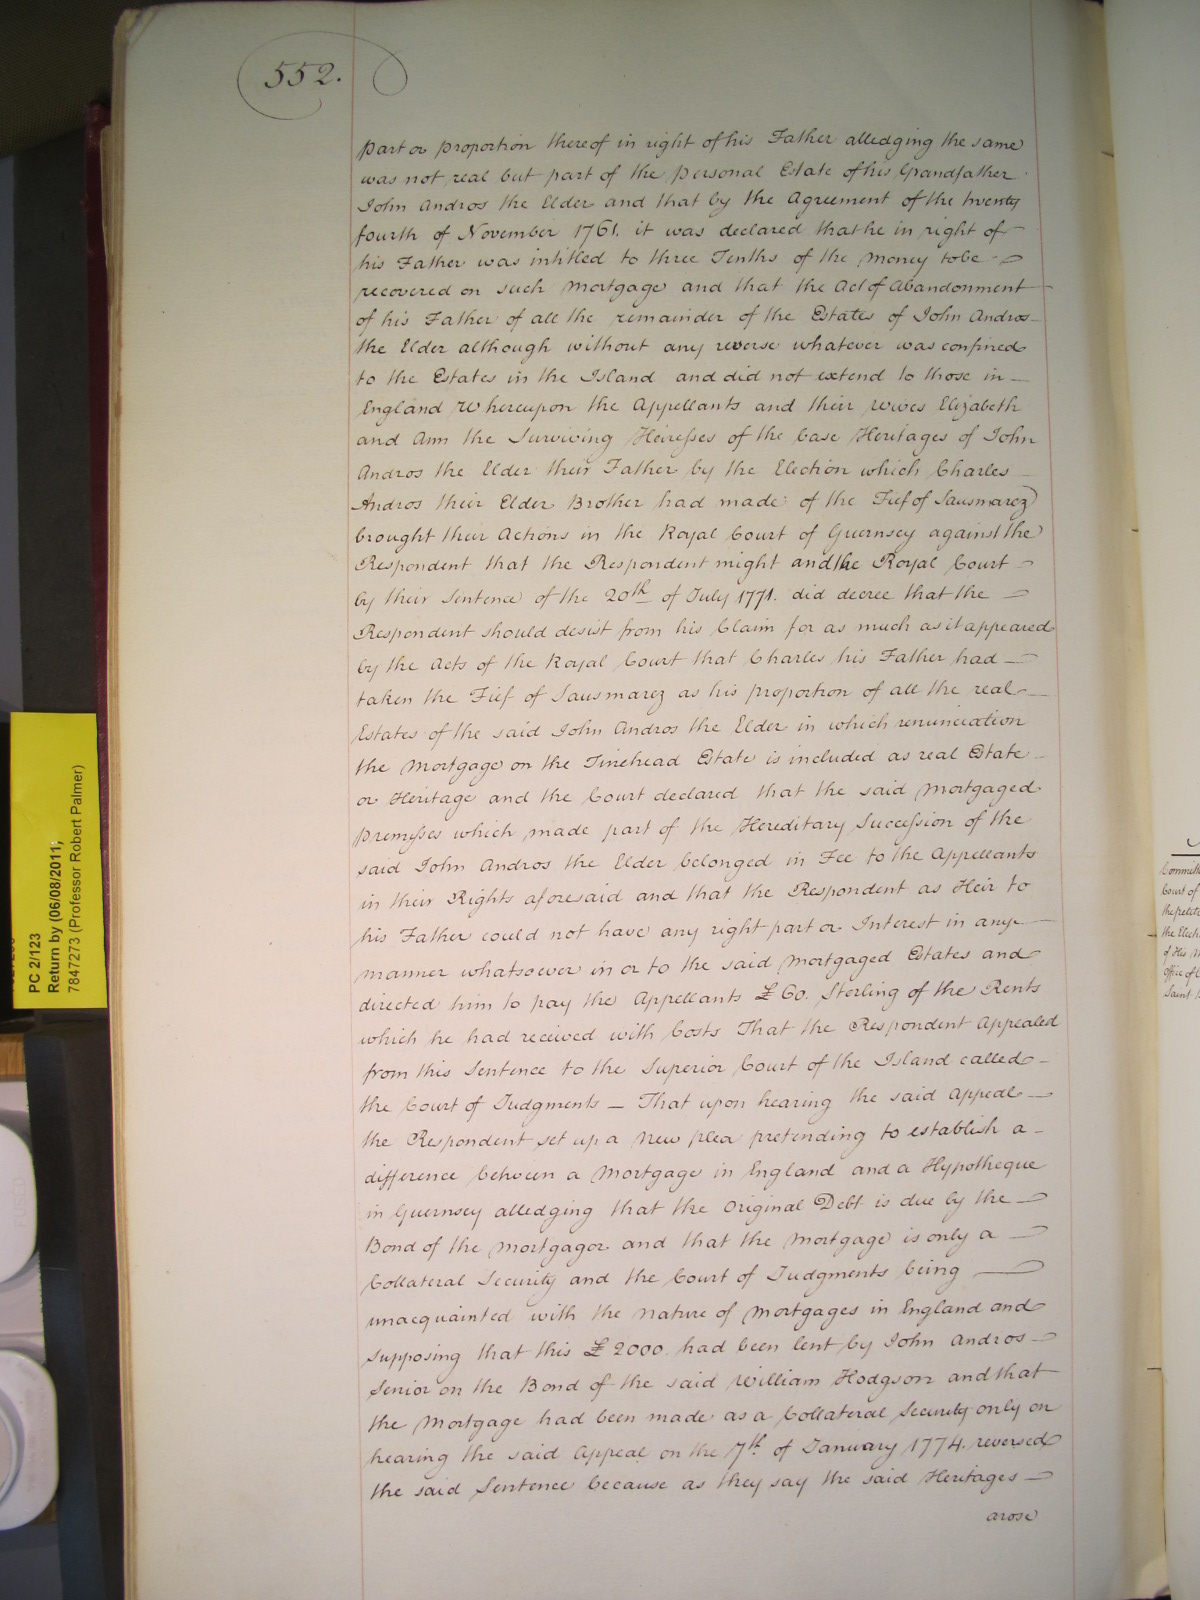 552.
part or proportion thereof in right of his Father alledging the same
was not real but part of the personal Estate of his Grandfather
John Andros the Elder and that by the Agreement of the twenty
fourth of November 1761. it was declared that he in right of
his Father was intitled to three Tenths of the Money to be
recovered on such Mortgage and that the Act of Abandonment
of his Father of all the remainder of the Estates of John Andros
the Elder although without any reverse whatever was confined
to the Estates in the Island and did not extend to those in
England Whereupon the Appellants and their wives Elizabeth
and Ann the Surviving Heiresses of the Case Heritages of John
Andros the Elder their Father by the Election which Charles
Andros their Elder Brother had made of the Fief of Sausmarez
brought their Actions in the Royal Court of Guernsey against the
Respondent that the Respondent might and the Royal Court
by their Sentence of the 20th of July 1771. did decree that the
Respondent should desist from his Claim for as much as it appeared
by the Acts of the Royal Court that Charles his Father had
taken the Fief of Sausmarez as his proportion of all the real
Estates of the said John Andros the Elder in which renunciation
the Mortgage on the Tinehead Estate is included as real Estate
or Heritage and the Court declared that the said Mortgaged
premisses which made part of the Hereditary Succession of the
said John Andros the Elder belonged in Fee to the Appellants
in their Rights aforesaid and that the Respondent as Heir to
his Father could not have any right part or Interest in any
manner whatsoever in or to the said Mortgaged Estates and
directed him to pay the Appellants £60. Sterling of the Rents
which he had received with Costs That the Respondent Appealed
from this Sentence to the Superior Court of the Island called
the Court of Judgments – That upon hearing the said Appeal
the Respondent set up a new plea pretending to establish a
difference between a Mortgage in England and a Hypotheque
in Guernsey alledging that the Original Debt is due by the
Bond of the Mortgagor and that the Mortgage is only a
Collateral Security and the Court of Judgments being
unacquainted with the nature of Mortgages in England and
supposing that this £2000. had been lent by John Andros
Senior on the Bond of the said William Hodgson and that
the Mortgage had been made as a Collateral Security only on
hearing the said Appeal on the 7th of January 1774. reversed
the said Sentence because as they say the said Heritages
arose
PC 2/123
Return by (06/08/2011;
7847273 (Professor Robert Palmer)
Court of
the Elect
of His M
Office of
Saint